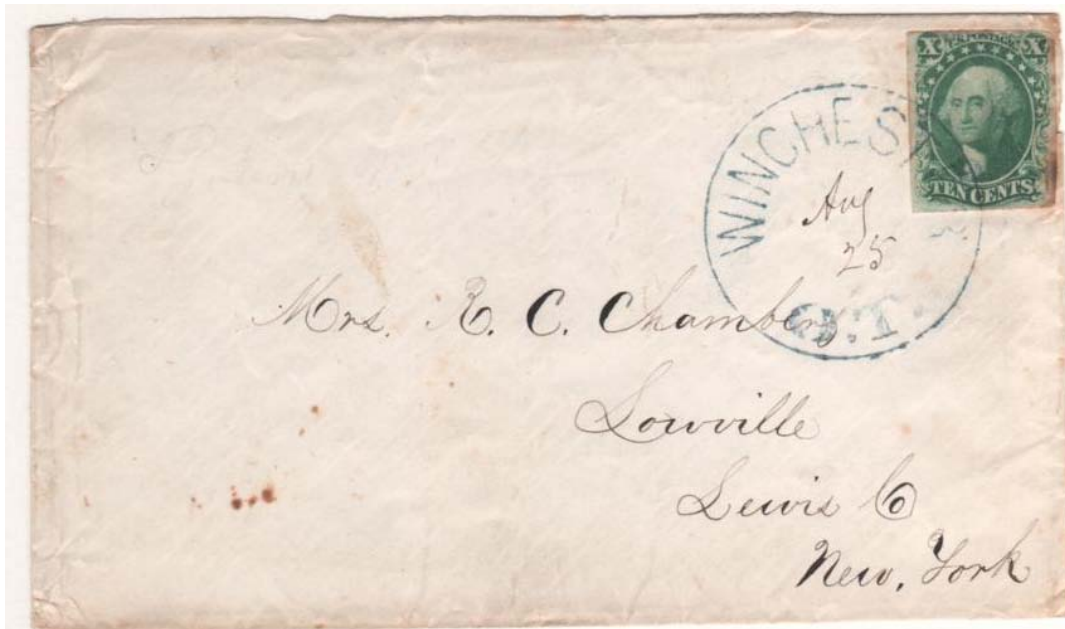 X U.S. POSTAGE X
TEN CENTS
WINCHEST
Aug
25
O.T.
Mrs. R. C. Chambers
Lowville
Lewis Co
New, York